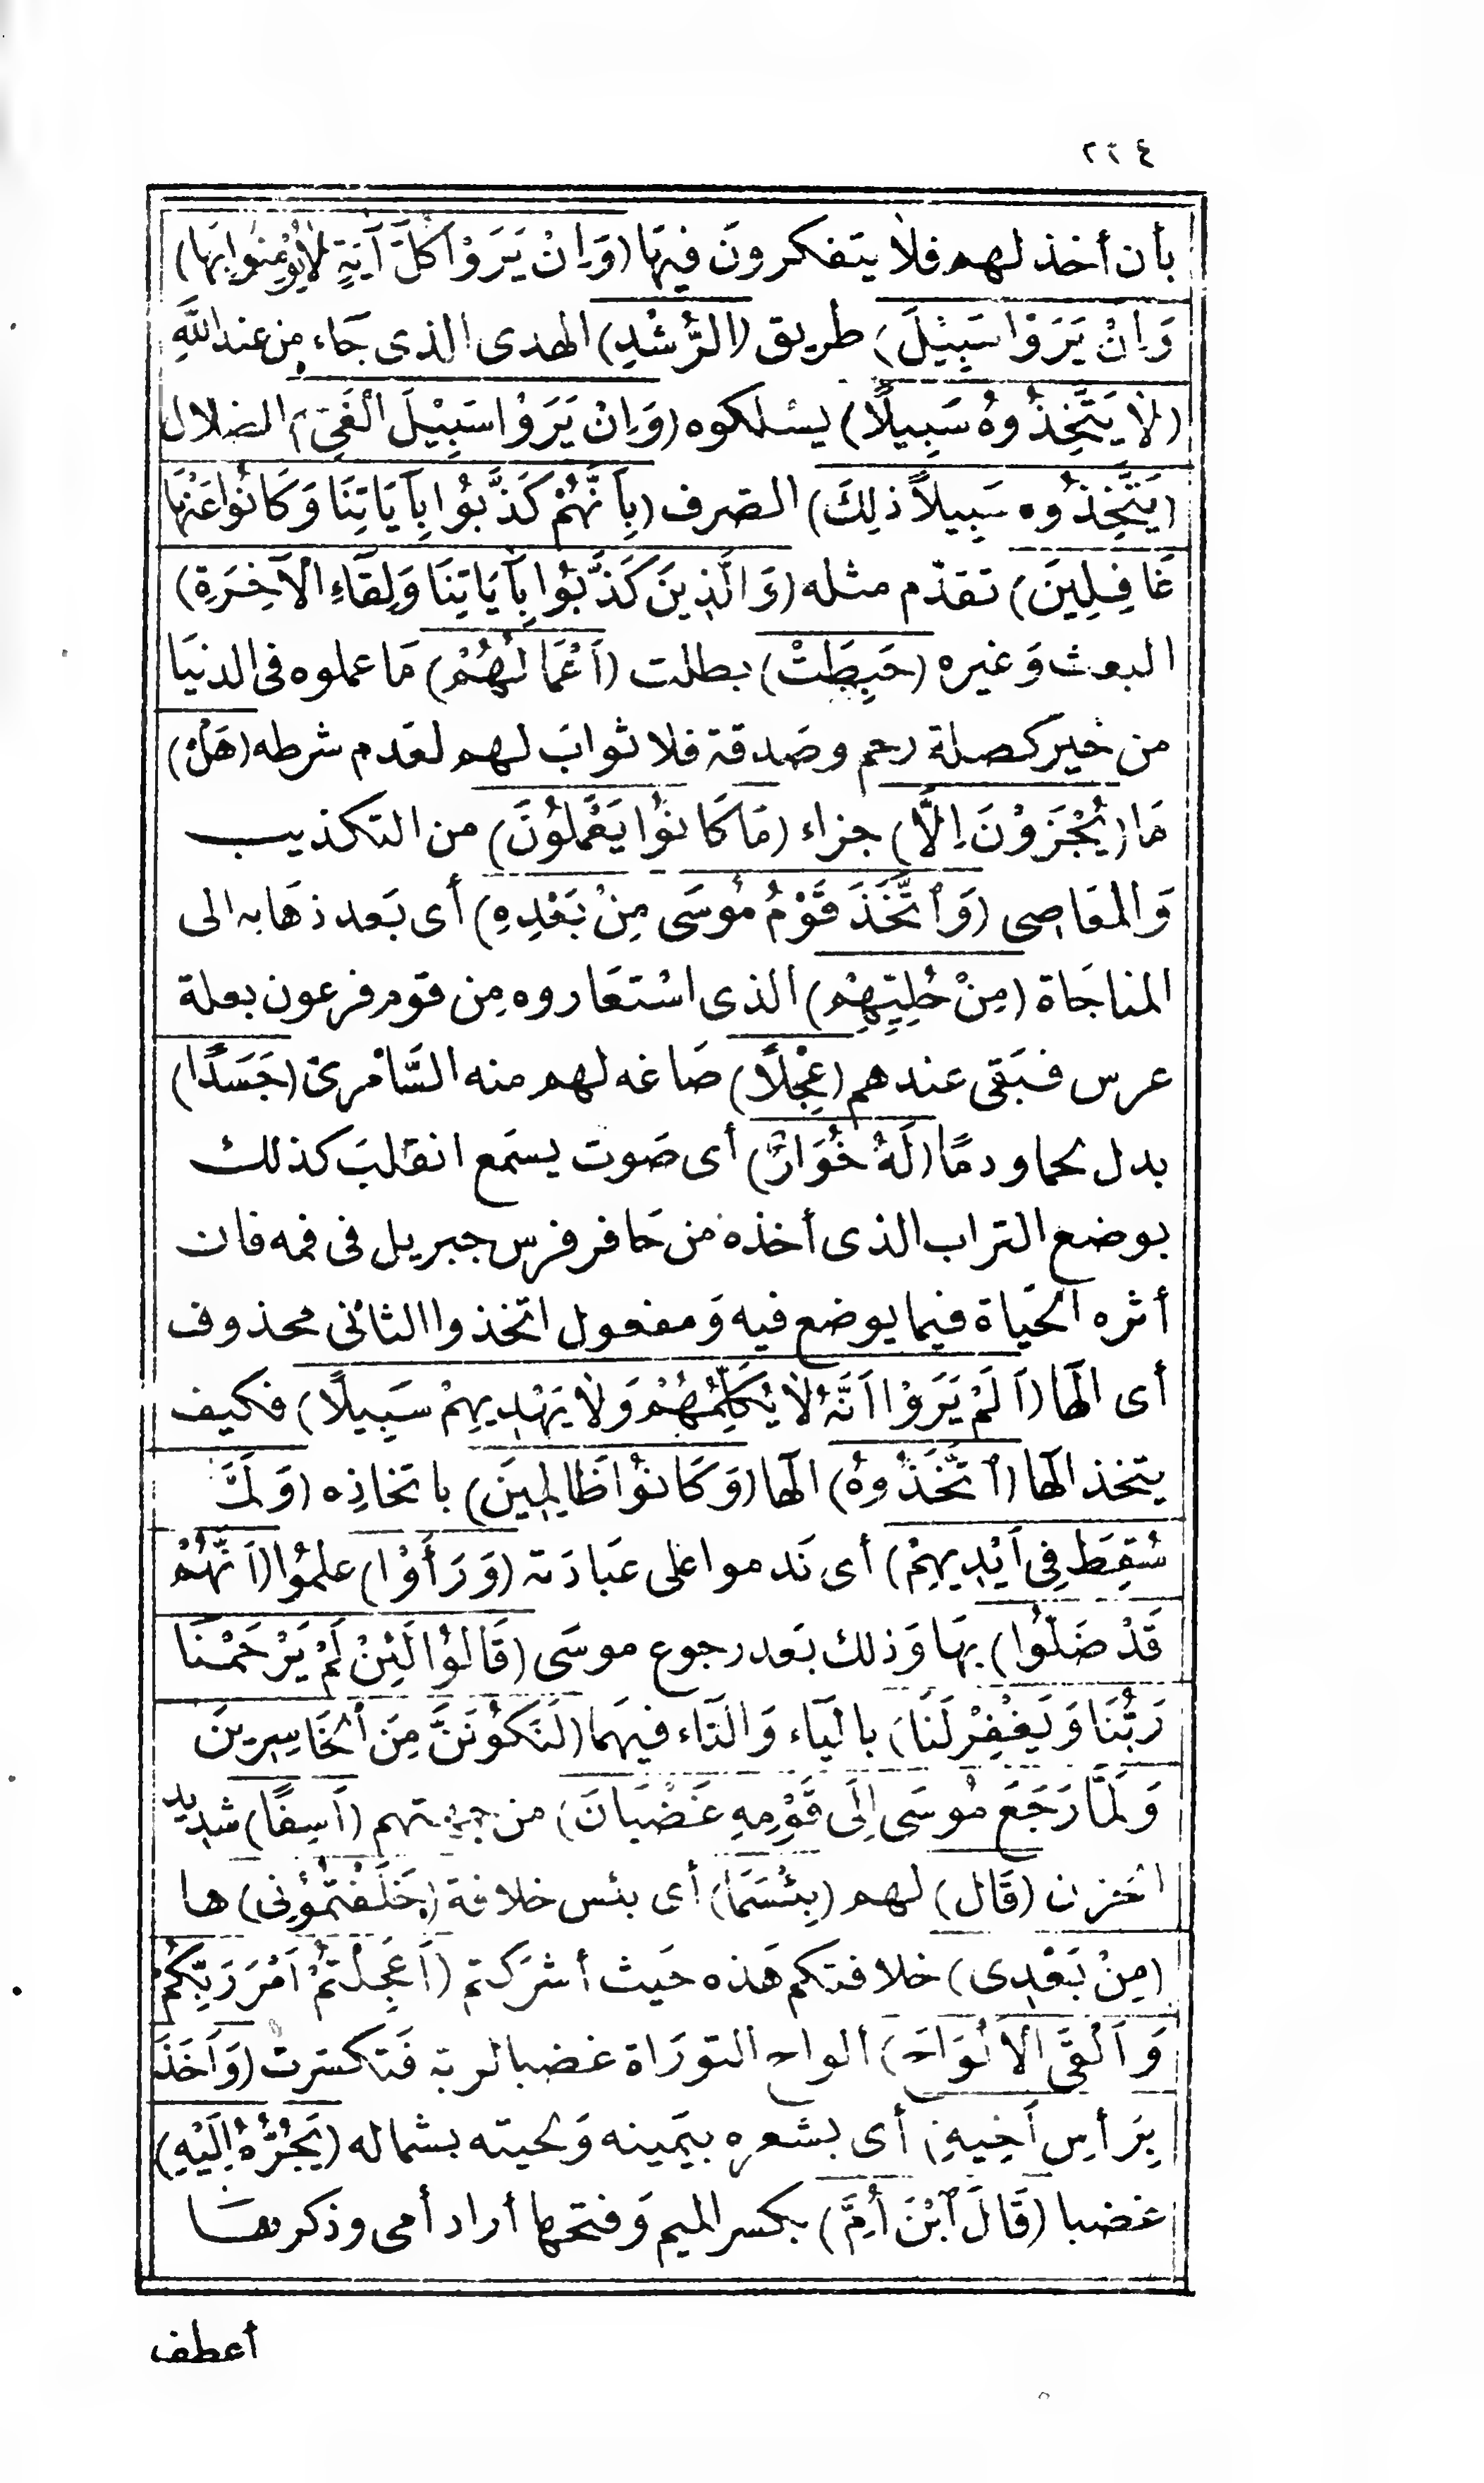 ٢٢٤
بأن أخذ لهم فلا يتفكرون فيها (وَاِنْ يَرَوْا كُلَّ آيَةٍ لَا يُؤْمِنُوا بِهَا)
وَاِنْ يَرَوْا سَبِيْلَ) طريق (الرُّشْدِ) الهدى الذى جَاء مِن عند اللَّهِ
(لَا يَتَّخِذُوهُ سَبِيلًا) يسلكوه (وَاِنْ يَرَوْا سَبِيْلَ الْغَىِّ) الضلال
(يَتَّخِذُوه سَبِيلاً ذلِكَ) الصرف (بِاَنَّهُمْ كَذَّبُوا بِآيَاتِنَا وَكَانُوا عَنْهَا
غَافِلِينَ) تقدّم مثله (وَالَّذِينَ كَذَّبُوا بِآيَاتِنَا وَلِقَاءِ الْآخِرَةِ)
البعث وَغيره (حَبِطَتْ) بطلت (اَعْمَالُهُمْ) مَا عملوه فى الدنيَا
من خير كصلة رحم وصَدقة فلا ثوابَ لهم لعَدم شرطه (هَلْ)
مَا (يُجْزَوْنَ اِلَّا) جزاء (مَا كَانُوا يَعْمَلُونَ) من التكذيب
وَالمعَاصِى (وَٱتَّخَذَ قَوْمُ مُوسَى مِنْ بَعْدِهِ) أى بَعد ذهَابه الى
المناجَاة (مِنْ حُلِيِّهِمْ) الذى اسْتعَاروه مِن قوم فرعون بعلة
عرس فبَقى عندهم (عِجْلًا) صَاغه لهم منه السَّامْرىّ (جَسَدًا)
بدل لحما ودمًا (لَهُ خُوَارٌ) أى صَوت يسمَع انقلبَ كذلك
بوضع التراب الذى أخذه من حَافر فرس جبريل فى فمه فان
أثره الحيَاة فيما يوضع فيه وَمفعول اتخذوا الثانى محذوف
أى الٓها (اَلَمْ يَرَوْا اَنَّهُ لَا يُكَلِّمُهُمْ وَلَا يَهْدِيهِمْ سَبِيلًا) فكيف
يتخذ الٓها (ٱتَّخَذُوهُ) الٓها (وَكَانُوا ظَالِمِينَ) باتخاذِه (وَلَمَّا
سُقِطَ فِى اَيْدِيهِمْ) أى نَدموا على عبَادَته (وَرَأَوْا) علمُوا (اَنَّهُمْ
قَدْ ضَلُّوا) بهَا وَذلك بَعد رجوع موسَى (قَالُوا لَئِنْ لَمْ يَرْحَمْنَا
رَبُّنَا وَيَغْفِرْ لَنَا) بالْيَاء وَالْتَاء فيهمَا (لَنَكُونَنَّ مِنَ الْخَاسِرِينَ
وَلَمَّا رَجَعَ مُوسَى اِلَى قَوْمِهِ غَضْبَانَ) من جهتهم (اَسِفًا) شديد
الحزن (قَال) لهم (بِئْسَمَا) أى بئس خلافة (خَلَفْتُمُونِى) ها
(مِنْ بَعْدِى) خلافتكم هَذه حَيث أشرَكتم (اَعَجِلْتُمْ اَمْرَ رَبِّكُمْ
وَاَلْقَى الْاَلْوَاحَ) ألواح التورَاة غضبا لربه فَتكسّرت (وَاَخَذَ
بِرَأسِ اَخِيهِ) أى بشعره بيَمينه وَلحيته بشماله (يَجُرُّهُ اِلَيْهِ)
غضبا (قَالَ ٱبْنَ أُمِّ) بكسر الميم وَفتحها أراد أمى وذكرهَا
أعطف